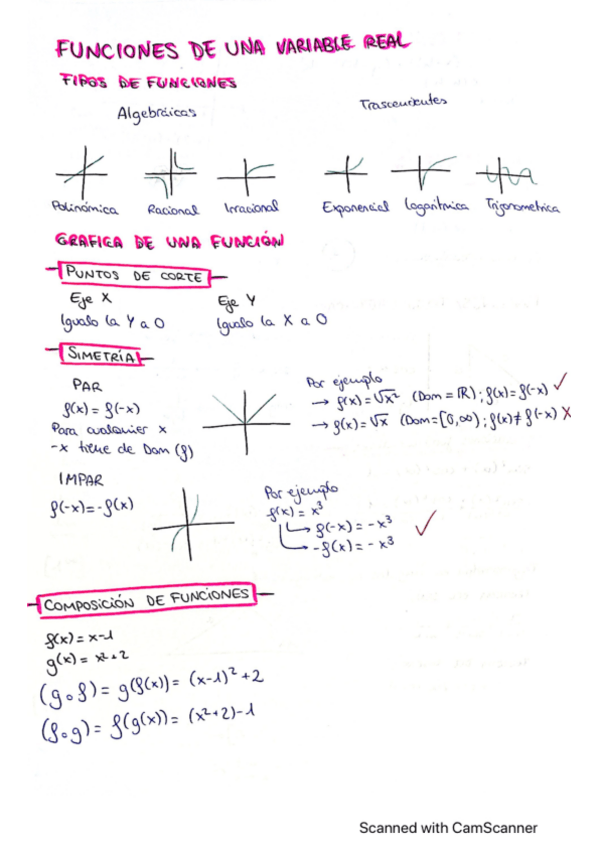 FUNCIONES DE UNA VARIABLE REAL
TIPOS DE FUNCIONES
Algebráicas
Trascendentes
Polinómica Racional Irracional Exponencial Logarítmica Trigonometrica
GRAFICA DE UNA FUNCIÓN
PUNTOS DE CORTE
Eje X Eje Y
Igualo la Y a 0 Igualo la X a 0
SIMETRÍA
PAR
f(x) = f(-x)
Para cualquier x
-x tiene de Dom (f)
Por ejemplo
→ f(x) = √x² (Dom = ℝ) ; f(x) = f(-x) ✓
→ f(x) = √x (Dom = [0,∞) ; f(x) ≠ f(-x) X
IMPAR
f(-x) = -f(x)
Por ejemplo
f(x) = x³
↳ f(-x) = -x³
↳ -f(x) = -x³ ✓
COMPOSICIÓN DE FUNCIONES
f(x) = x-1
g(x) = x²+2
(g∘f) = g(f(x)) = (x-1)² + 2
(f∘g) = f(g(x)) = (x²+2)-1
Scanned with CamScanner